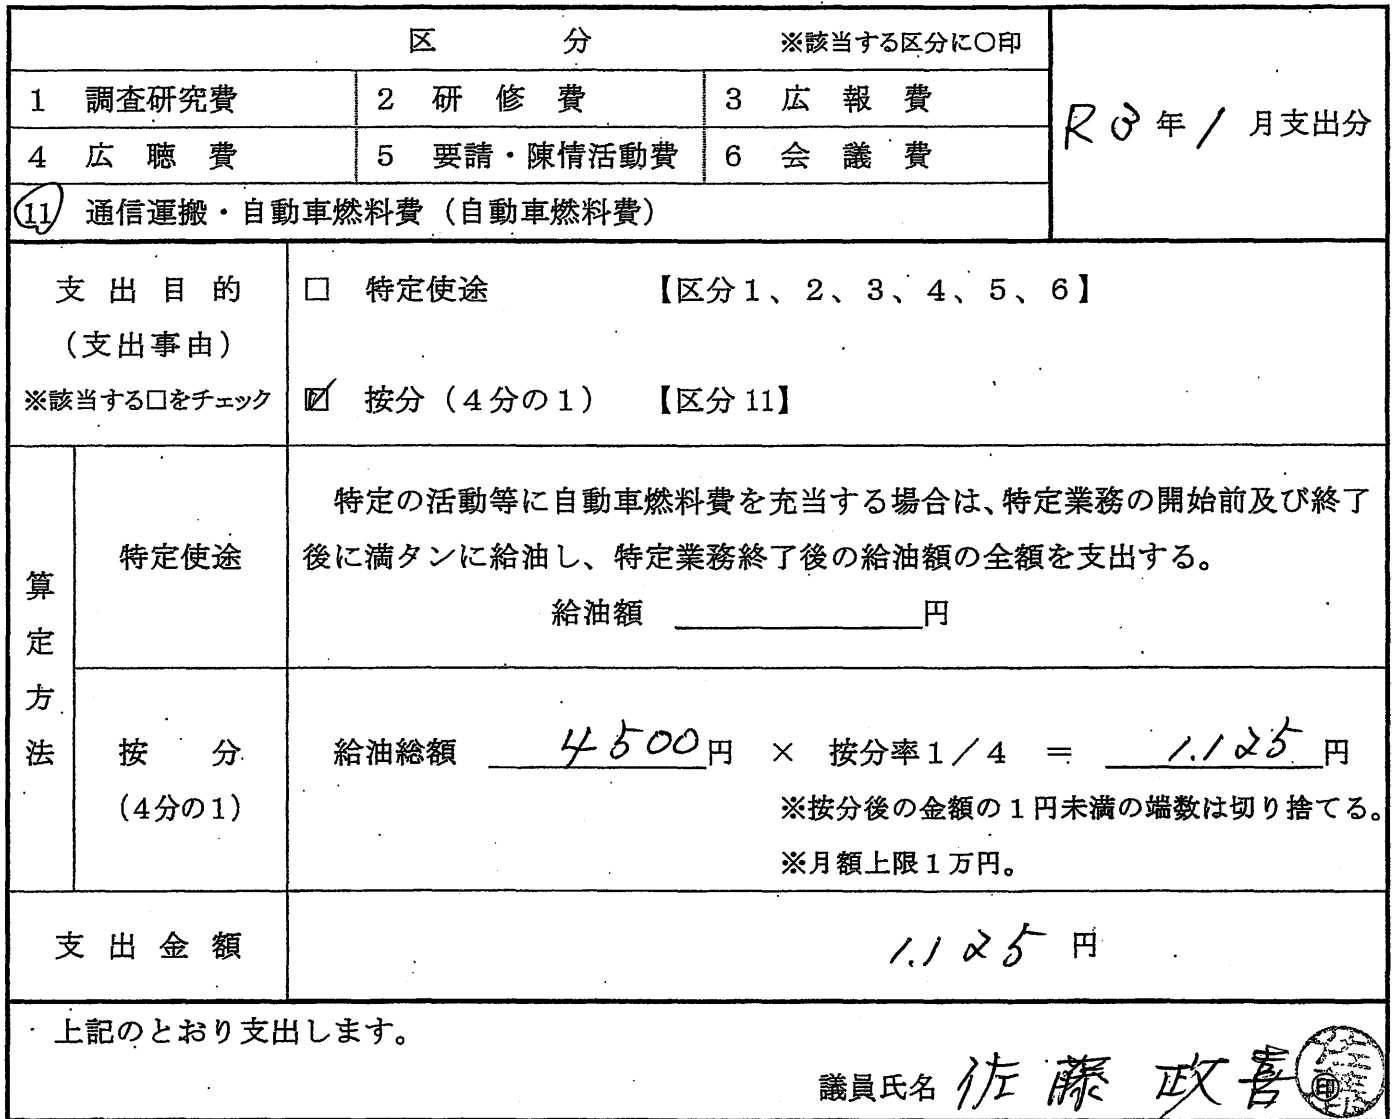 区　分　※該当する区分に○印
R3年1月支出分
1　調査研究費　2　研修費　3　広報費
4　広聴費　5　要請・陳情活動費　6　会議費
11　通信運搬・自動車燃料費（自動車燃料費）
支出目的
（支出事由）
※該当する□をチェック
□　特定使途　【区分1、2、3、4、5、6】
☑　按分（4分の1）　【区分11】
算定方法
特定使途
特定の活動等に自動車燃料費を充当する場合は、特定業務の開始前及び終了
後に満タンに給油し、特定業務終了後の給油額の全額を支出する。
給油額　＿＿＿＿円
按分
（4分の1）
給油総額　4500円　×　按分率1／4　＝　1.125円
※按分後の金額の1円未満の端数は切り捨てる。
※月額上限1万円。
支出金額　1.125円
上記のとおり支出します。
議員氏名　佐藤 政喜　印